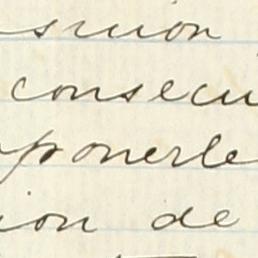 sición
consecu
ponerle
ion de